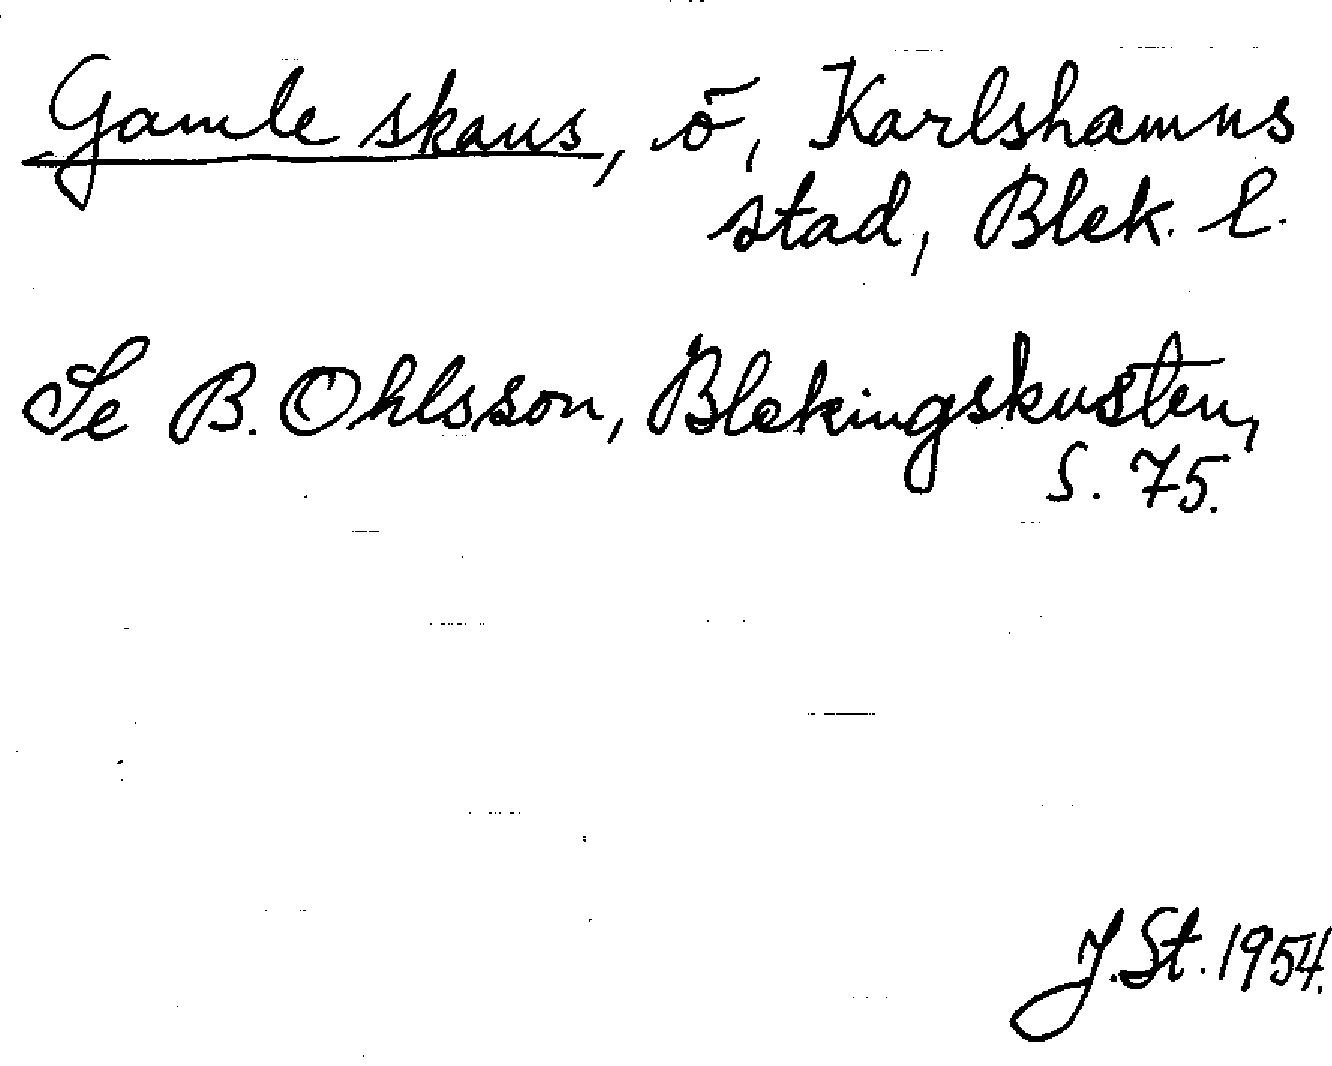 Gamle skans, ö, Karlshamns
stad, Blek. l.
Se B. Ohlsson, Blekingskusten,
S. 75.
J. St. 1954.